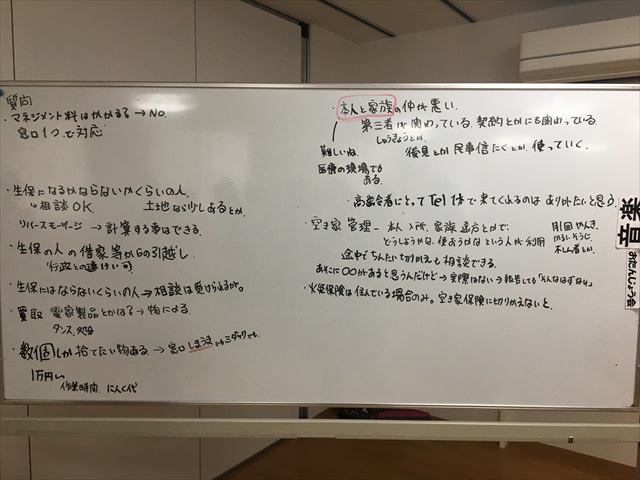 質問
・マネジメント料はかかる? → No.
窓口1つで対応
・生保になるかならないかくらいの人.
↳相談OK. 土地なら少しあるとか.
リバースモーゲージ → 計算する事はできる.
・生保の人の借家等からの引越し
行政との連けい可
・生保にはならないくらいの人→相談は受けられるか.
・買取 電家製品とかは? → 物による.
タンス、欠分
・数個しか捨てたい物ある. → 窓口 しまうま でもミダックでも.
1万円〜
作業時間 にんく代
・本人と家族の仲が悪い.
第三者が関わっている. 契約とかにも関わっている.
しゅうきょうとか.
難しいね.
後見とか民事信たくとか, 使っていく.
医療の現場でも
ある.
・高齢者にとってTel 1本で来てくれるのは ありがたいと思う.
・空き家管理 – 本人入所, 家族遠方とかで.
どうしようかな、使おうかな という人が利用
月1回 かんき.
かるいそうじ.
不しん者とか.
途中でちんたい切りかえも相談できる.
あそこに〇〇があると思うんだけど→ 実際はない → 報告しても「そんなはずない」
・火災保険は住んでいる場合のみ. 空き家保険に切りかえないと.
楽昇
おたんじょう会